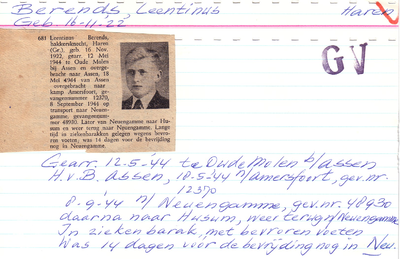 Berends, Leentinus Haren
Geb. 16-11-22
GV
681 Leentinus Berends,
bakkersknecht, Haren
(Gr.), geb. 16 Nov.
1922, gearr. 12 Mei
1944 te Oude Molen
bij Assen en overge-
bracht naar Assen, 18
Mei 4944 van Assen
overgebracht naar
kamp Amersfoort, ge-
vangennummer 12370,
8 September 1944 op
transport naar Neuen-
gamme, gevangennum-
mer 48930. Later van Neuengamme naar Hu-
sum en weer terug naar Neuengamme. Lange
tijd in ziekenbarakken gelegen wegens bevro-
ren voeten, was 14 dagen voor de bevrijding
nog in Neuengamme
Gearr. 12-5-44 te Oude Molen b/assen
H.v.B. assen, 18-5-44 n/amersfoort, gev.nr.
12370
8-9-44 n/ Neuengamme, gev.nr. 48930
daarna naar Husum, weer terug n/Neuengamme
In ziekenbarak, met bevroren voeten
Was 14 dagen voor de bevrijding nog in Neu.